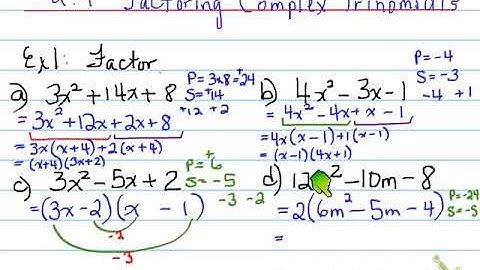 2.4 Factoring Complex Trinomials
Ex1: Factor
a) 3x² + 14x + 8
P = 3x8 = +24
S = +14
+12 +2
= 3x² + 12x + 2x + 8
= 3x(x+4) + 2(x+4)
= (x+4)(3x+2)
b) 4x² - 3x - 1
P = -4
S = -3
-4 +1
= 4x² - 4x + x - 1
= 4x(x-1) + 1(x-1)
= (x-1)(4x+1)
c) 3x² - 5x + 2
P = +6
S = -5
-3 -2
= (3x - 2)(x - 1)
-2
-3
d) 12 ² - 10m - 8
= 2(6m² - 5m - 4)
P = -24
S = -5
=